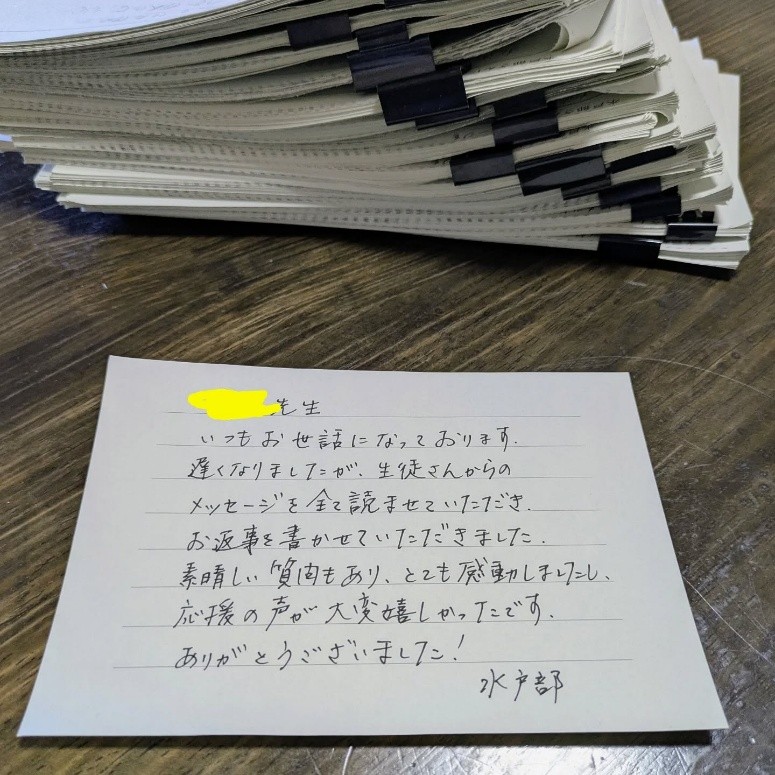 先生
いつもお世話になっております.
遅くなりましたが、生徒さんからの
メッセージを全て読ませていただき.
お返事を書かせていただきました.
素晴しい質問もあり、とても感動しましたし、
応援の声が大変嬉しかったです.
ありがとうございました!
水戸部